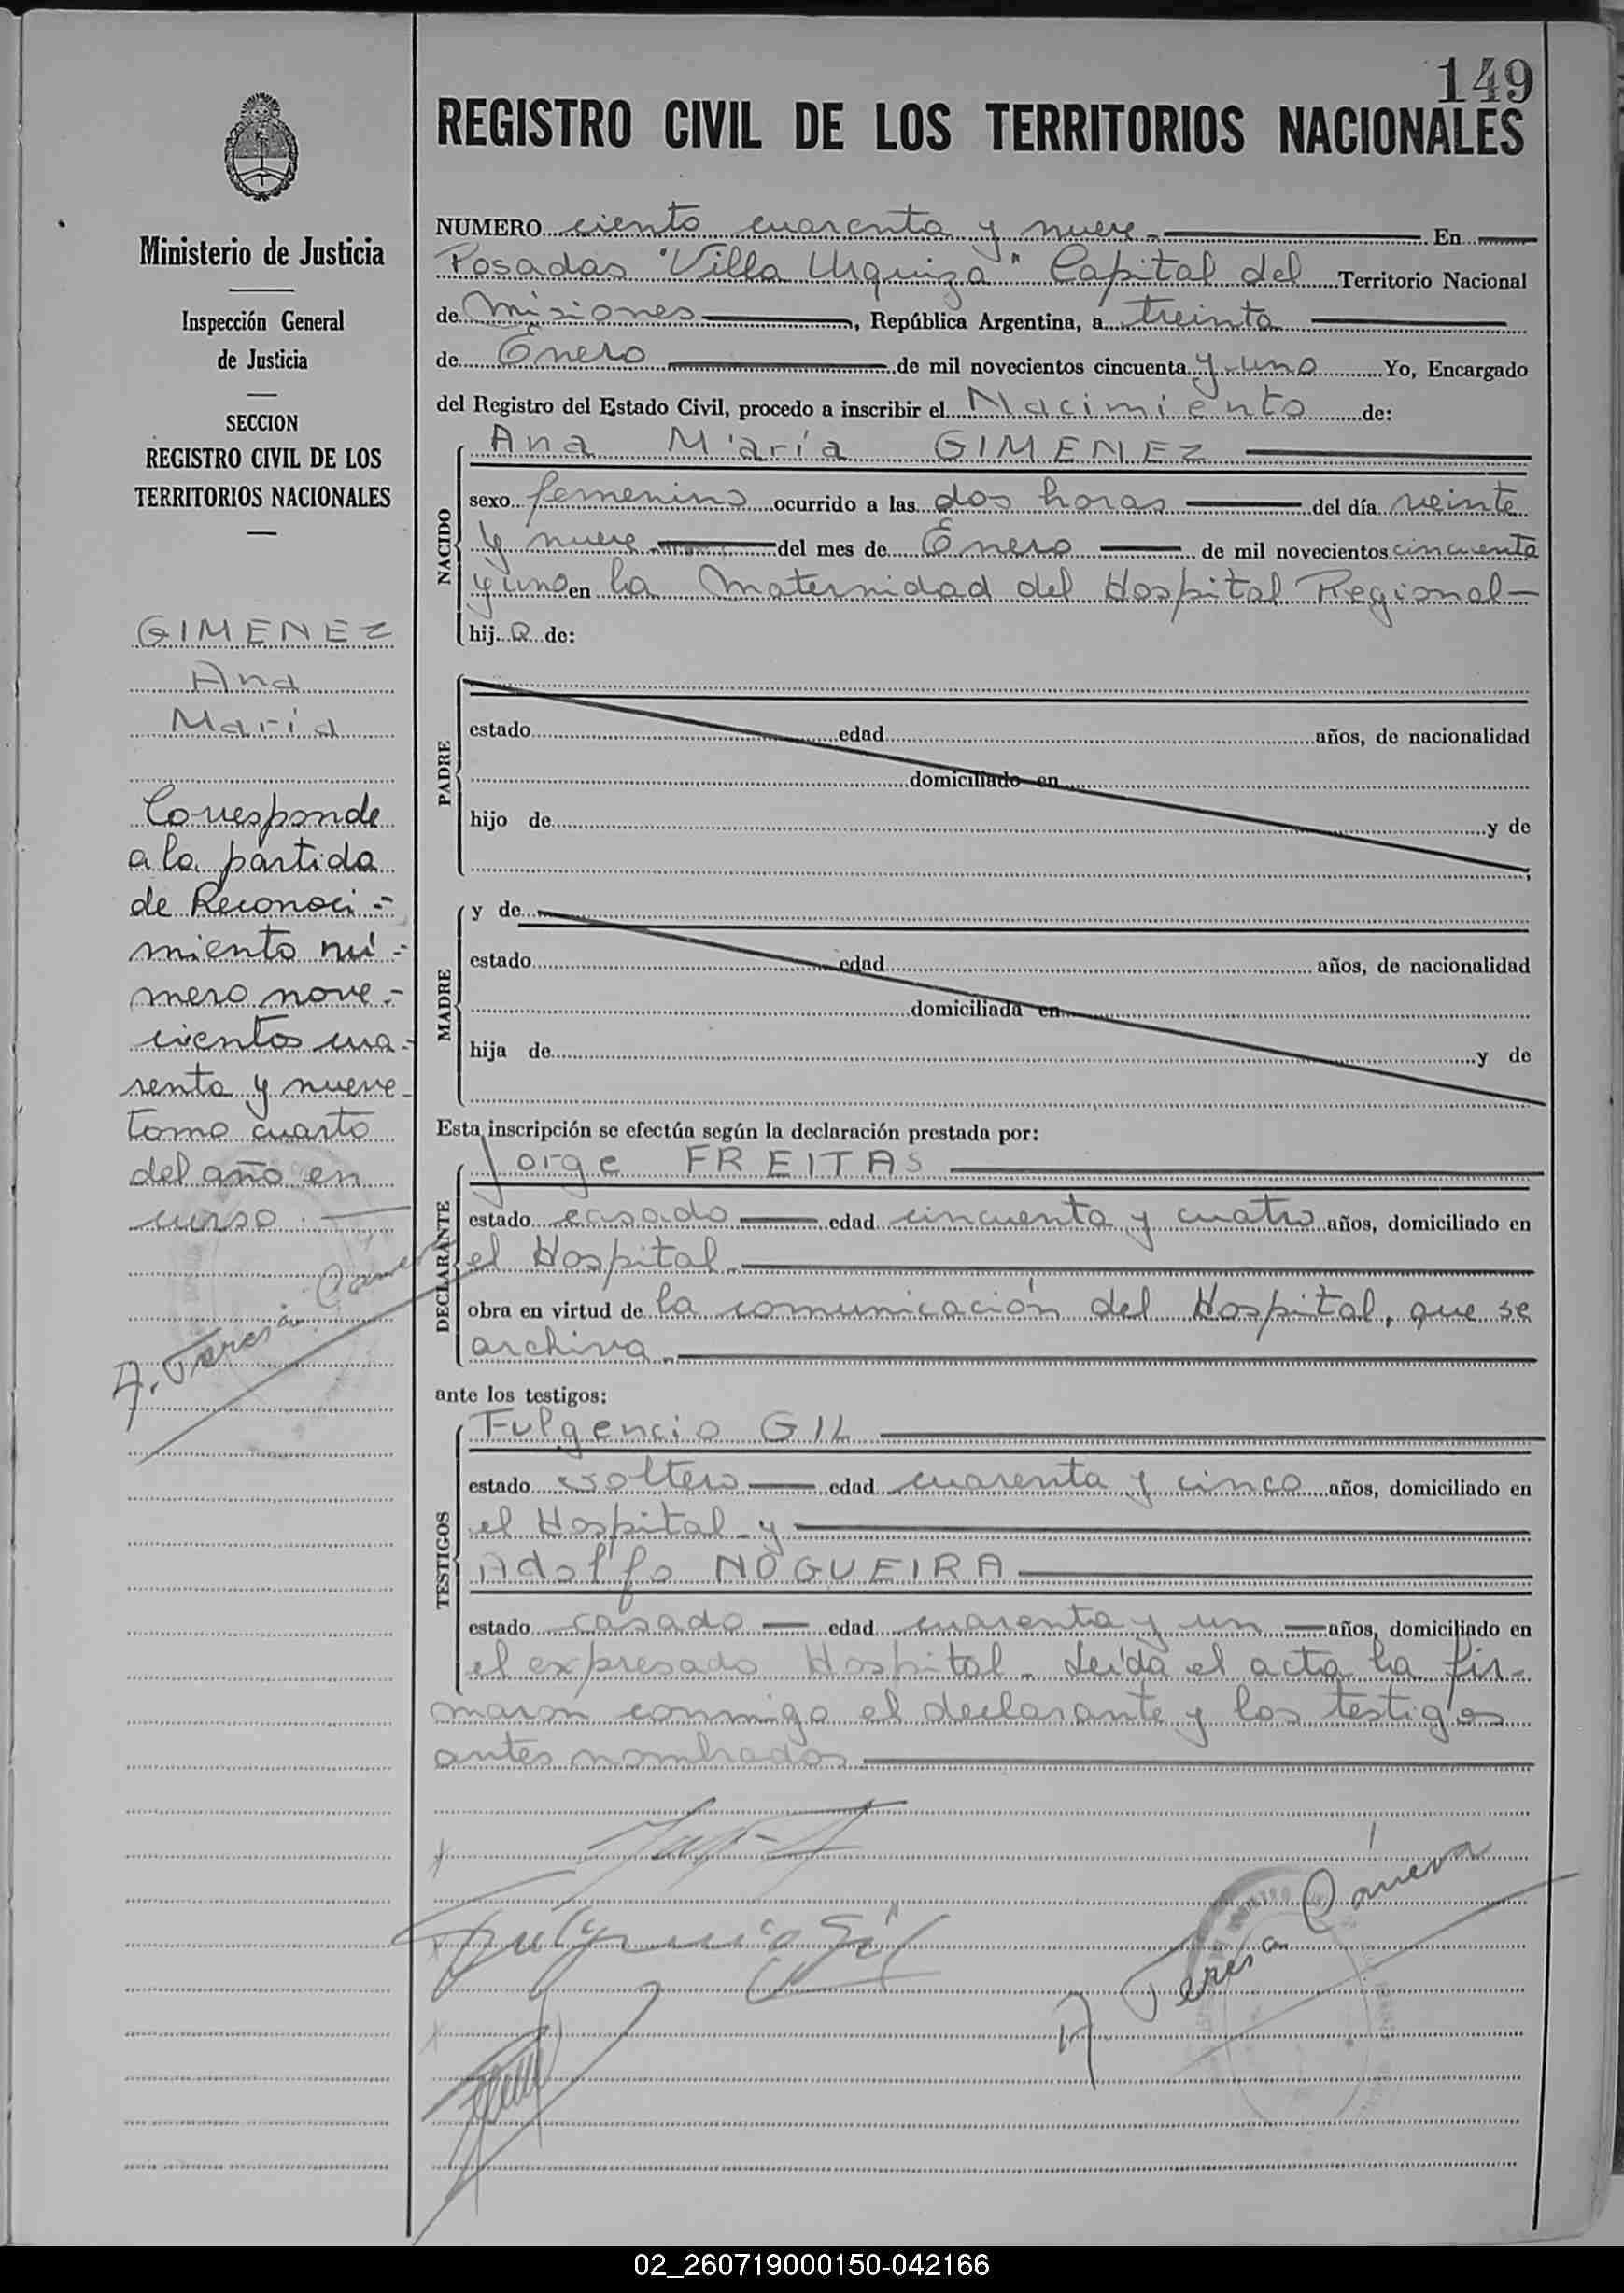 149
REGISTRO CIVIL DE LOS TERRITORIOS NACIONALES
Ministerio de Justicia
Inspección General
de Justicia
SECCION
REGISTRO CIVIL DE LOS
TERRITORIOS NACIONALES
GIMENEZ
Ana
María
Corresponde
a la partida
de Reconoci-
miento nú-
mero nove-
cientos cua-
renta y nueve
tomo cuarto
del año en
curso.
A. Teresa Cáneva
NUMERO ciento cuarenta y nueve.- En
Posadas "Villa Urquiza" Capital del Territorio Nacional
de Misiones, República Argentina, a treinta
de Enero de mil novecientos cincuenta y uno Yo, Encargado
del Registro del Estado Civil, procedo a inscribir el Nacimiento de:
NACIDO
Ana María GIMENEZ
sexo femenino ocurrido a las dos horas del día veinte
y nueve del mes de Enero de mil novecientos cincuenta
y uno en la Maternidad del Hospital Regional-
hija de:
PADRE
estado edad años, de nacionalidad
domiciliado en
hijo de y de
MADRE
y de
estado edad años, de nacionalidad
domiciliada en
hija de y de
Esta inscripción se efectúa según la declaración prestada por:
DECLARANTE
Jorge FREITAS
estado casado edad cincuenta y cuatro años, domiciliado en
el Hospital.
obra en virtud de la comunicación del Hospital, que se
archiva.
ante los testigos:
TESTIGOS
Fulgencio GIL
estado soltero edad cuarenta y cinco años, domiciliado en
el Hospital y
Adolfo NOGUEIRA
estado casado edad cuarenta y un años, domiciliado en
el expresado Hospital. Leída el acta la fir-
maron conmigo el declarante y los testigos
antes nombrados
Fulgencio Gil
A Teresa Cáneva
02_260719000150-042166